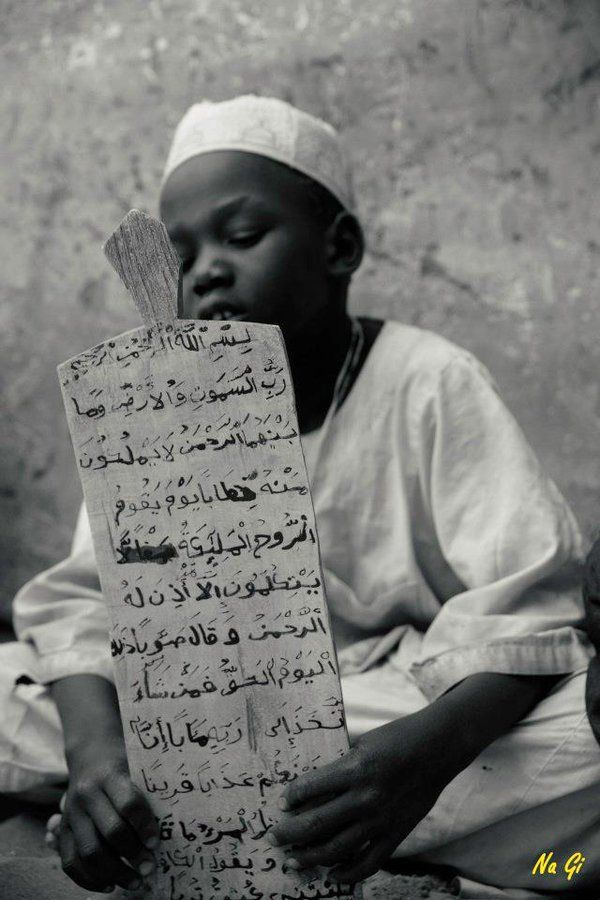 بِسْمِ اللَّهِ الرَّحْمَنِ الرَّحِيمِ
رَبِّ السَّمَوَتِ وَالْأَرْضِ وَمَا
بَيْنَهُمَا الرَّحْمَنِ لَا يَمْلِكُونَ
مِنْهُ خِطَابًا يَوْمَ يَقُومُ
الرُّوحُ الْمَلَئِكَةُ صَفًّا لَّا
يَتَكَلَّمُونَ إِلَّا أَذِنَ لَهُ
الرَّحْمَنُ وَقَالَ صَوَابًا ذَلِكَ
الْيَوْمُ الْحَقُّ فَمَنْ شَاءَ
اتَّخَذَ إِلَى رَبِّهِ مَابًا إِنَّا
عَذَابًا قَرِيبًا
الْمَرْءُ مَا
وَيَقُولُ
Na Gi